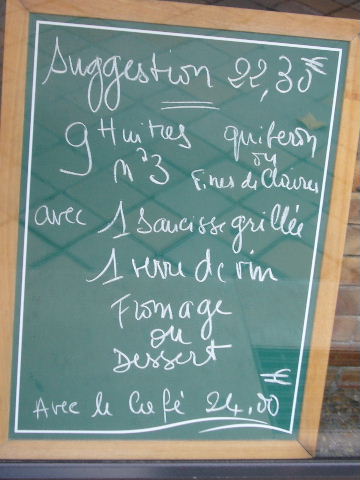 Suggestion 22,30€
9 Huitres quiberon
ou
n°3 Fines de Claires
avec 1 saucisse grillée
1 verre de vin
Fromage
ou
Dessert
Avec le Café 24,00€